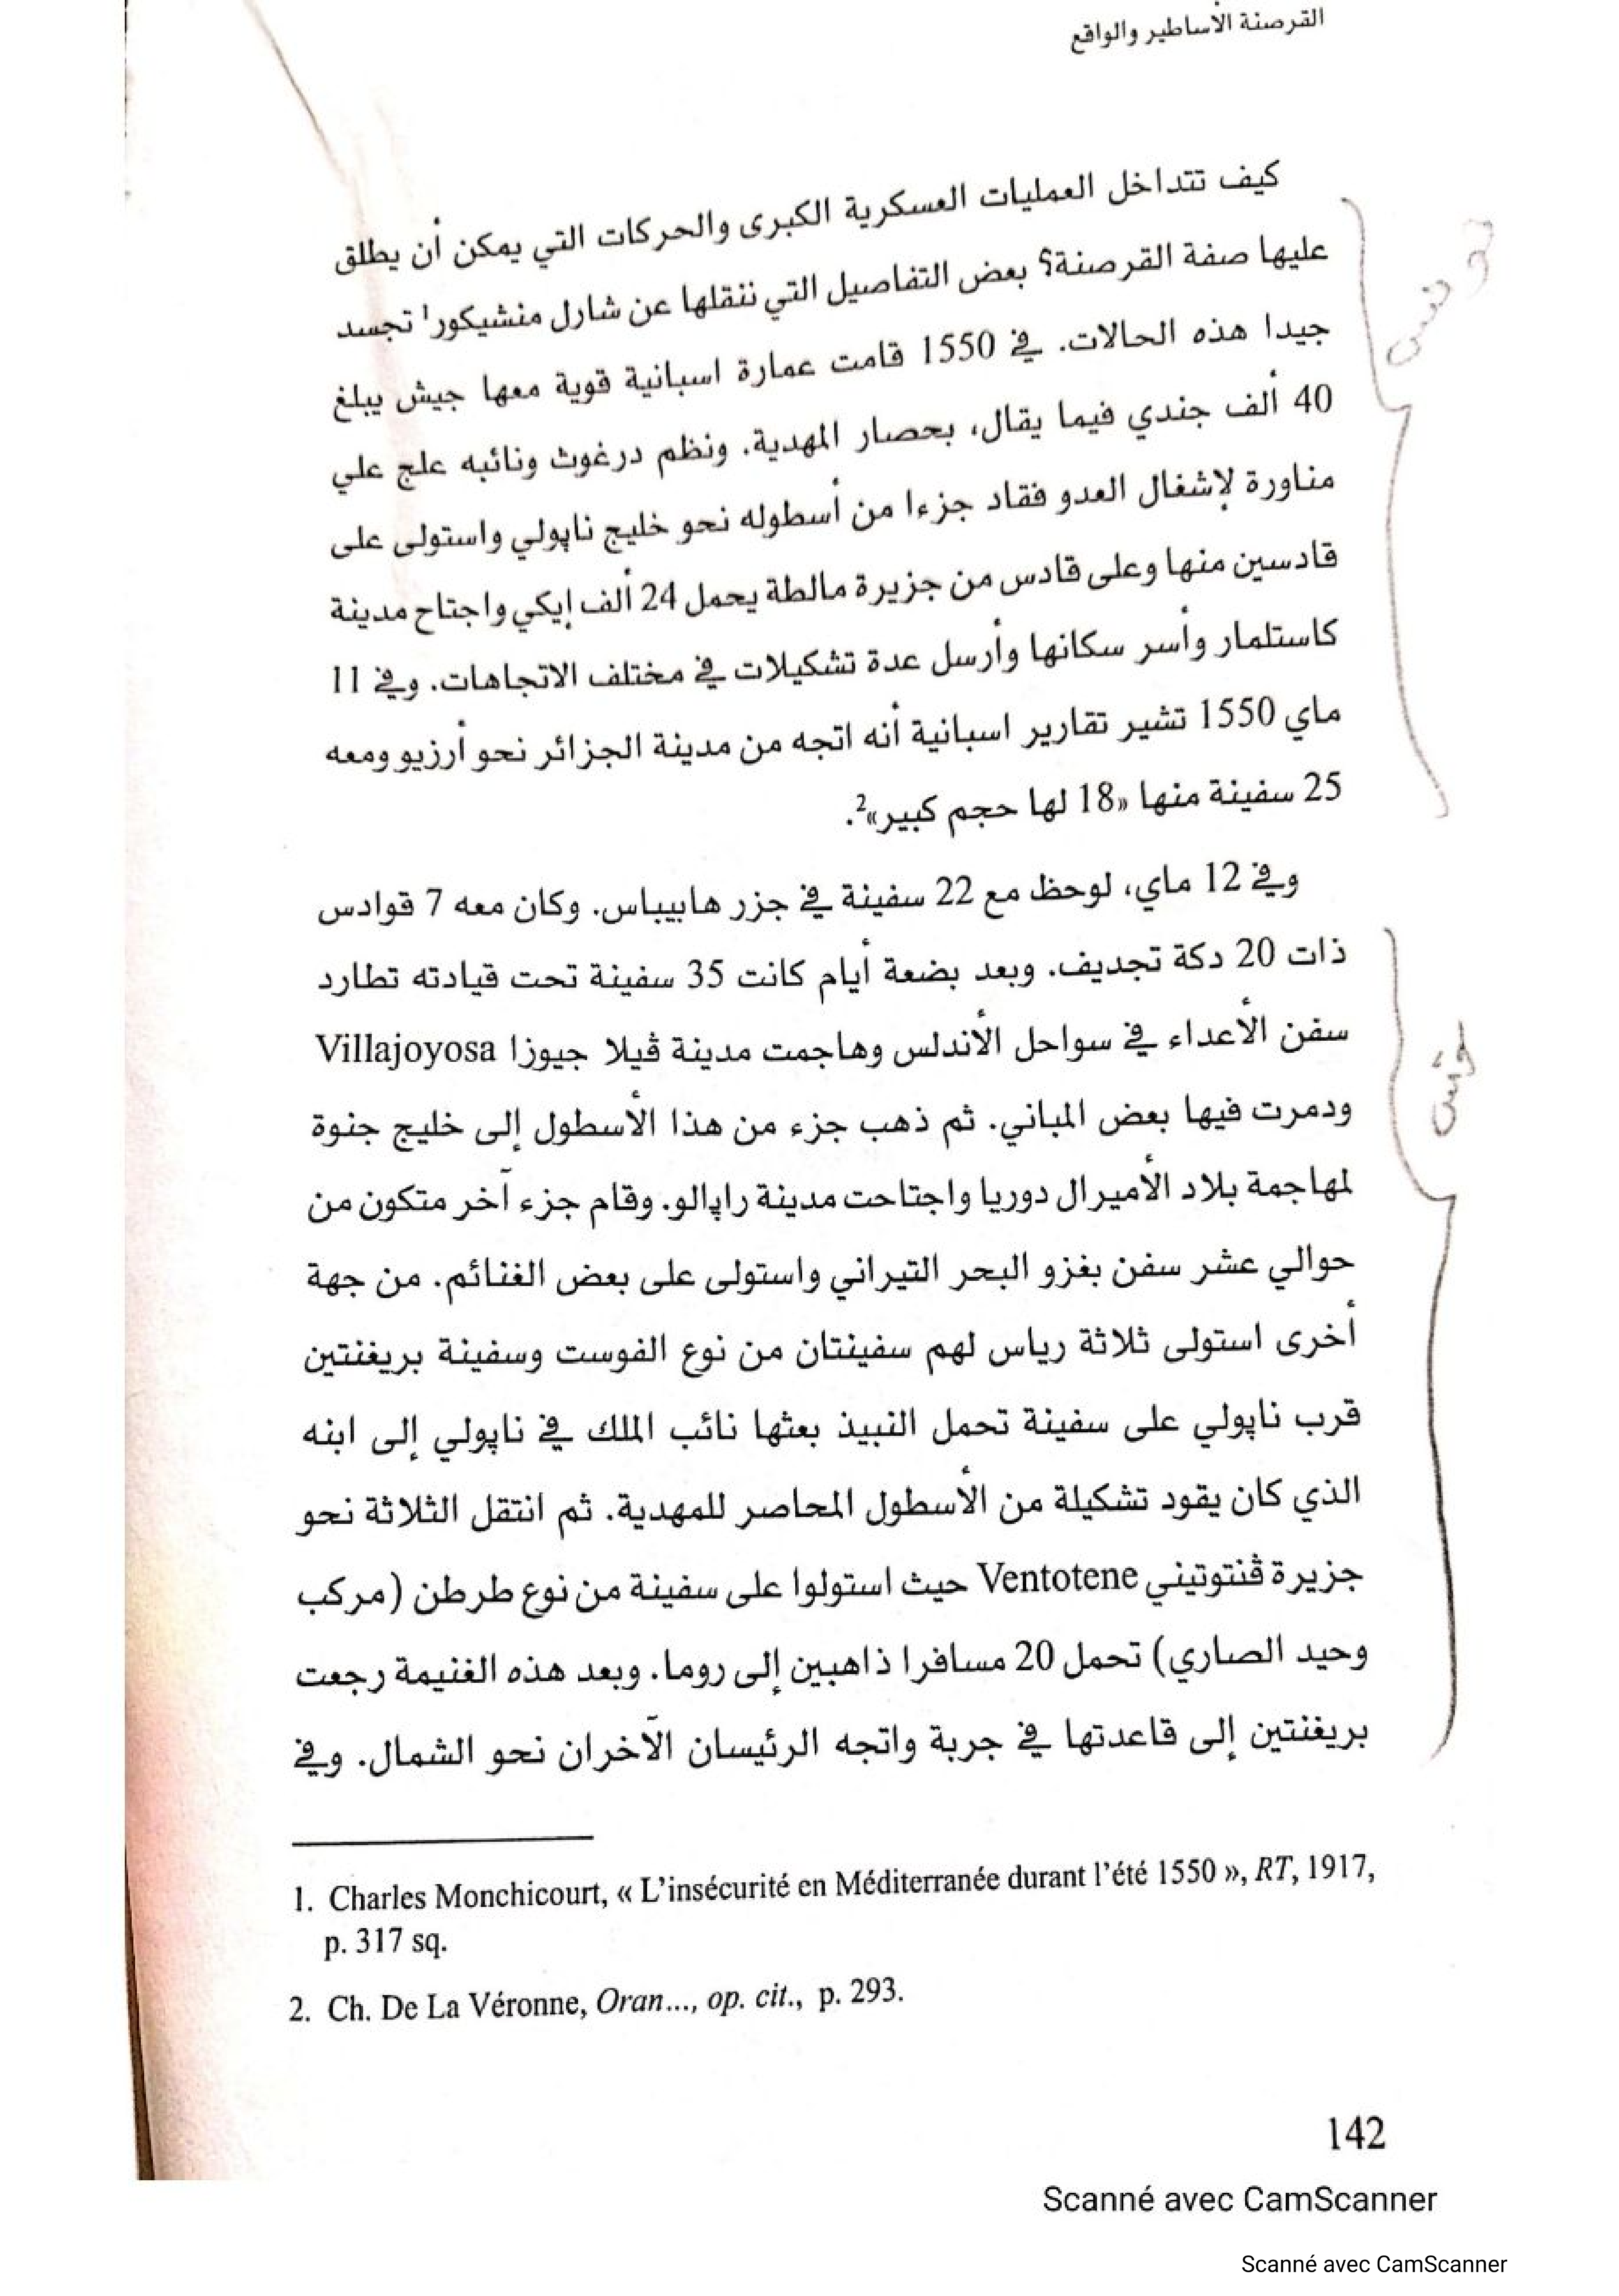 القرصنة الأساطير والواقع
كيف تتداخل العمليات العسكرية الكبرى والحركات التي يمكن أن يطلق
عليها صفة القرصنة؟ بعض التفاصيل التي ننقلها عن شارل منشيكور¹ تجسد
جيدا هذه الحالات. في 1550 قامت عمارة اسبانية قوية معها جيش يبلغ
40 ألف جندي فيما يقال، بحصار المهدية. ونظم درغوث ونائبه علج علي
مناورة لإشغال العدو فقاد جزءا من أسطوله نحو خليج ناپولي واستولى على
قادسين منها وعلى قادس من جزيرة مالطة يحمل 24 ألف إيكي واجتاح مدينة
كاستلمار وأسر سكانها وأرسل عدة تشكيلات في مختلف الاتجاهات. وفي 11
ماي 1550 تشير تقارير اسبانية أنه اتجه من مدينة الجزائر نحو أرزيو ومعه
25 سفينة منها «18 لها حجم كبير»².
وفي 12 ماي، لوحظ مع 22 سفينة في جزر هابيباس. وكان معه 7 قوادس
ذات 20 دكة تجديف. وبعد بضعة أيام كانت 35 سفينة تحت قيادته تطارد
سفن الأعداء في سواحل الأندلس وهاجمت مدينة ڤيلا جيوزا Villajoyosa
ودمرت فيها بعض المباني. ثم ذهب جزء من هذا الأسطول إلى خليج جنوة
لمهاجمة بلاد الأميرال دوريا واجتاحت مدينة راپالو. وقام جزء آخر متكون من
حوالي عشر سفن بغزو البحر التيراني واستولى على بعض الغنائم. من جهة
أخرى استولى ثلاثة رياس لهم سفينتان من نوع الفوست وسفينة بريغنتين
قرب ناپولي على سفينة تحمل النبيذ بعثها نائب الملك في ناپولي إلى ابنه
الذي كان يقود تشكيلة من الأسطول المحاصر للمهدية. ثم انتقل الثلاثة نحو
جزيرة ڤنتوتيني Ventotene حيث استولوا على سفينة من نوع طرطن (مركب
وحيد الصاري) تحمل 20 مسافرا ذاهبين إلى روما. وبعد هذه الغنيمة رجعت
بريغنتين إلى قاعدتها في جربة واتجه الرئيسان الآخران نحو الشمال. وفي
1. Charles Monchicourt, « L'insécurité en Méditerranée durant l'été 1550 », RT, 1917,
p. 317 sq.
2. Ch. De La Véronne, Oran..., op. cit., p. 293.
142
Scanné avec CamScanner
Scanné avec CamScanner